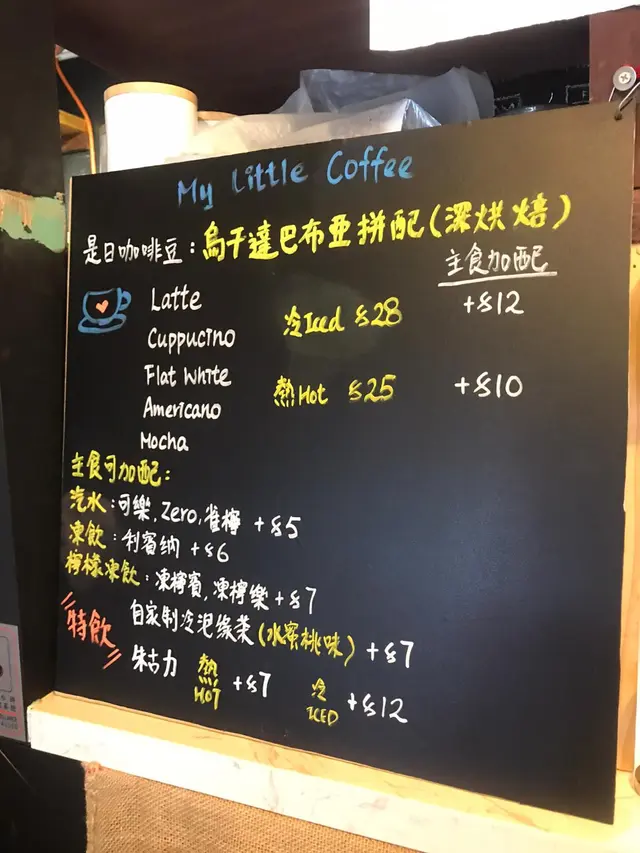 My Little Coffee
是日咖啡豆：烏干達巴布亞拼配(深烘焙)
主食加配
Latte
冷Iced $28 +$12
Cuppucino
Flat White
熱Hot $25 +$10
Americano
Mocha
主食可加配：
汽水：可樂, Zero, 雀檸 +$5
凍飲：利賓納 +$6
檸檬凍飲：凍檸賓, 凍檸樂 +$7
特飲 自家制冷泡綠茶(水蜜桃味) +$7
朱古力 熱 HOT +$7 冷 ICED +$12